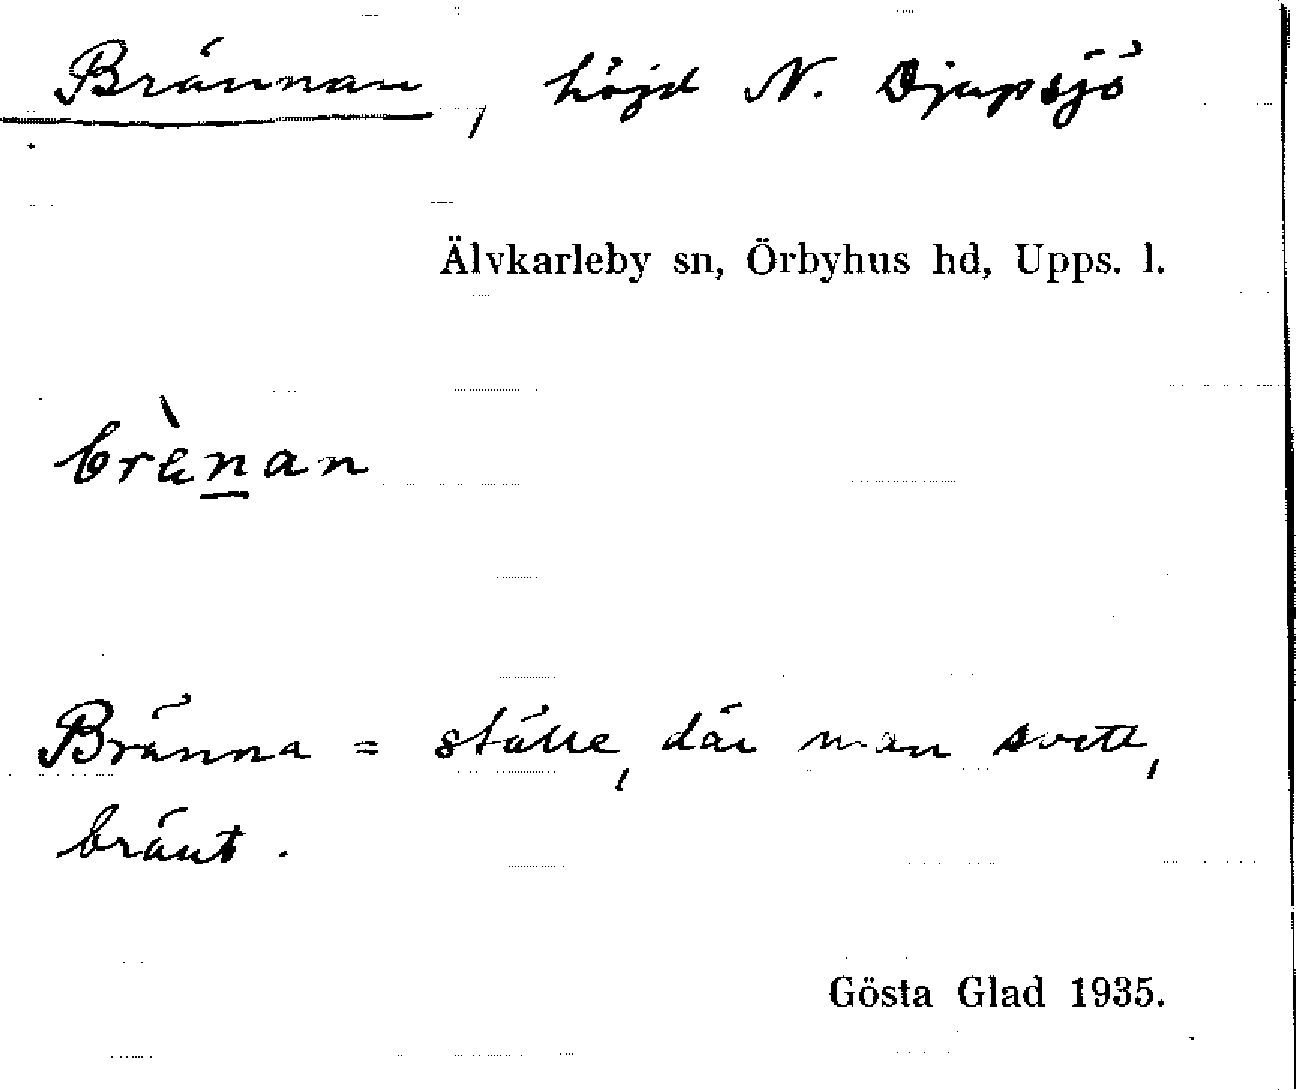 Brännan, höjd N. Djupsjö
Älvkarleby sn, Örbyhus hd, Upps. l.
brὲn̲an
Bränna = ställe, där man svett,
bränt.
Gösta Glad 1935.